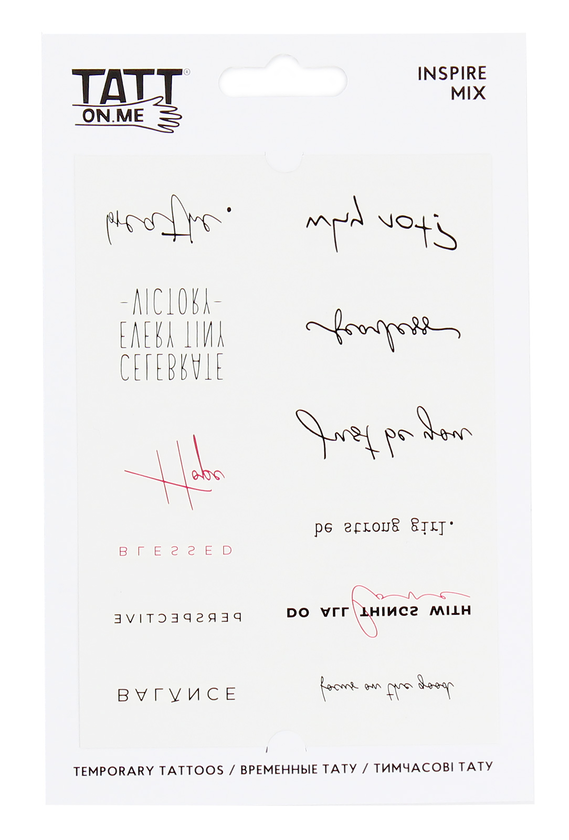 TATT
ON.ME
INSPIRE
MIX
breathe.
CELEBRATE
EVERY TINY
-VICTORY-
Hope
BLESSED
PERSPECTIVE
BALANCE
fearless
Just be you
be strong girl.
DO ALL THINGS WITH
Love
focus on the good
TEMPORARY TATTOOS / ВРЕМЕННЫЕ ТАТУ / ТИМЧАСОВІ ТАТУ